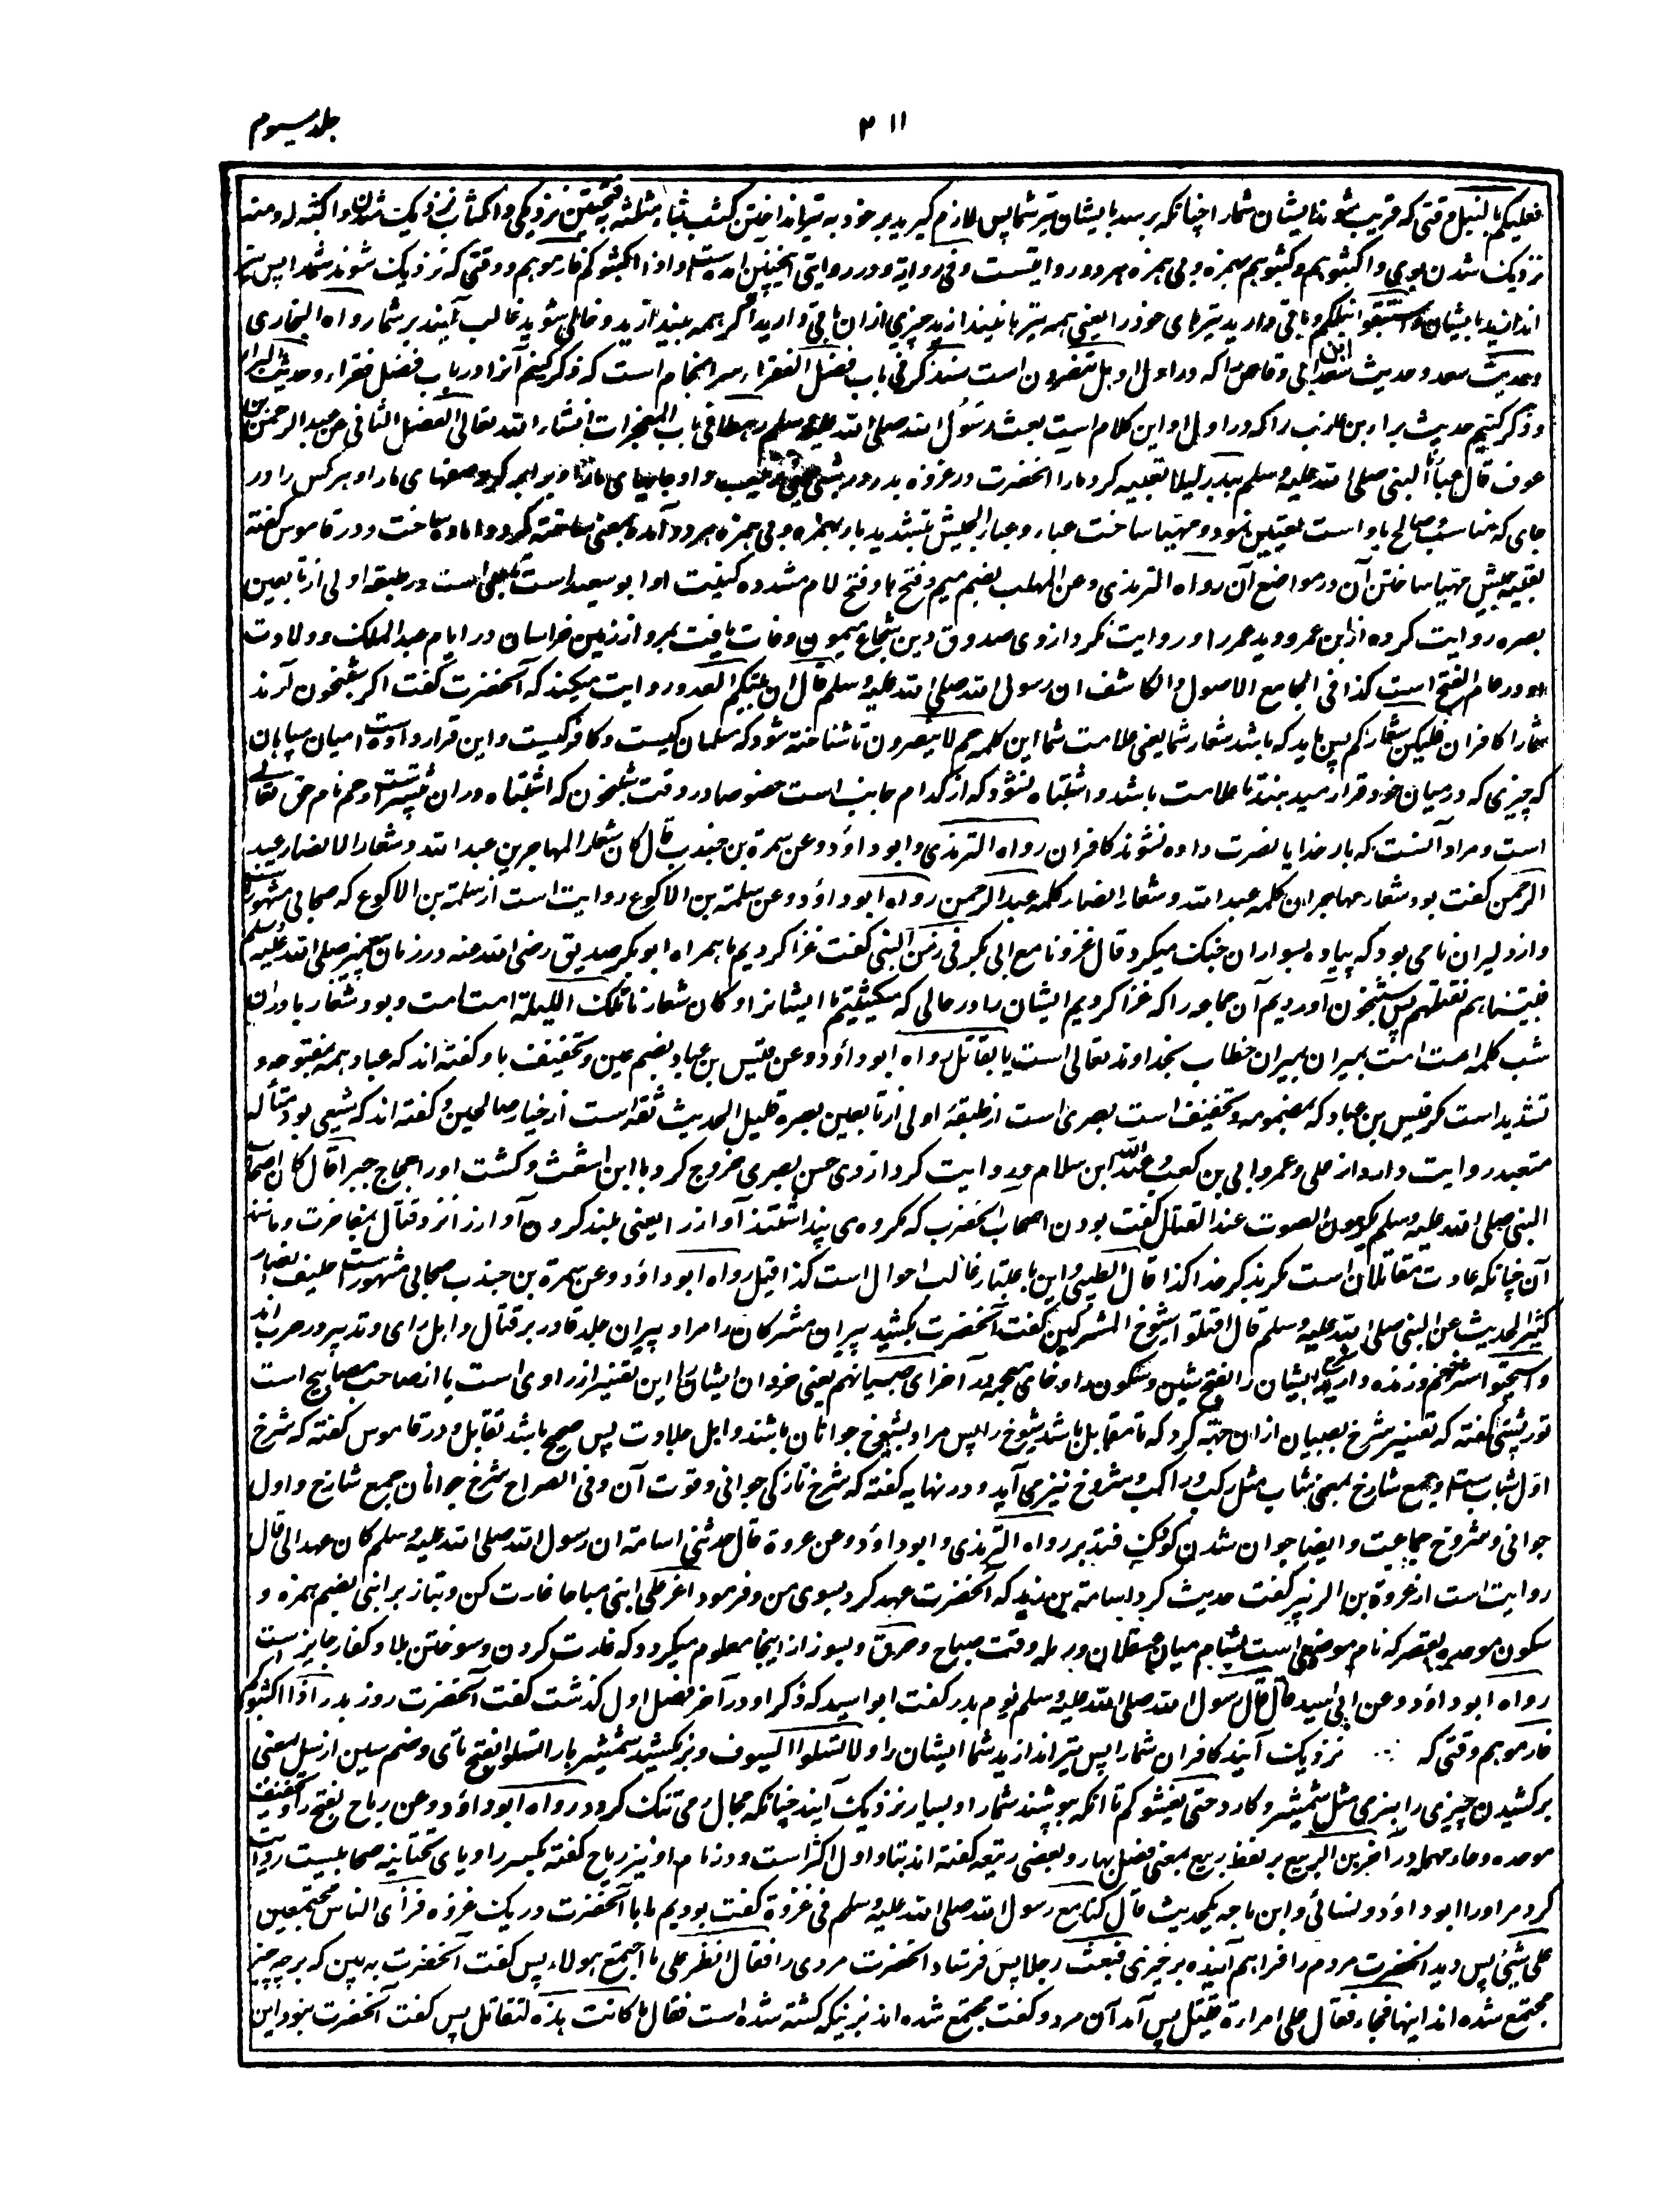 جلد سیوم
۳۱۱
فعلیکم بالنبل وقتی که قریب شوند ایشان شما را چنانکه برسد بایشان تیر شما پس لازم گیرید بر خود به تیر انداختن کثب بثاء مثلثه بفتحتین نزدیکی و اکثاب نزدیک شدن و اکثبه له و منه
نزدیک شدن بوی و اکثبوهم و کثبوهم بهمزه و بی همزه هر دو روایتست وفی روایة و در روایتی اینچنین آمده است اذا اکثبوکم فارموهم وقتی که نزدیک شوند شما را پس تیر
اندازید بایشان و استبقوا نبلکم و باقی دارید تیرهای خود را یعنی همه تیرها نیندازید چیزی ازان باقی دارید اگر همه بیندازید و خالی شوید غالب آیند بر شما رواه البخاری
و حدیث سعد و حدیث سعد ابن ابی وقاص را که در اول او هل تنصرون است سنذکر فی باب فضل الفقراء سرانجام است که ذکر کنیم آنرا در باب فضل فقراء و حدیث البراء
و ذکر کنیم حدیث براء بن عازب را که در اول او این کلام است بعث رسول الله صلی الله علیه وسلم رهطا فی باب المعجزات انشاء الله تعالی الفصل الثانی عن عبد الرحمن بن
عوف قال عبأنا النبی صلی الله علیه وسلم ببدر لیلا تعبیه کرد ما را آنحضرت در غزوه بدر در شبی یعنی ترتیب داد جایهای ما را و برابر کرد صفهای ما را و هر کس را در
جای که مناسب صالح باو است تعیین نمود و مهیا ساخت عباء و عبأ الجیش بتشدید با و بهمزه و بی همزه هر دو آمده بمعنی ساخته کرد و آماده ساخت و در قاموس گفته
تعبیه جیش مهیا ساختن آن در مواضع آن رواه الترمذی وعن المهلب بضم میم و فتح ها و فتح لام مشدده کنیت او ابو سعید است تابعی است در طبقه اولی از تابعین
بصره روایت کرده از ابن عمر و دید عمر را و روایت نکرد از وی صدوق دین شجاع میمون وفات یافت بمرو از زمین خراسان در ایام عبد الملک و ولادت
او در عام الفتح است کذا فی الجامع الاصول والکاشف ان رسول الله صلی الله علیه وسلم قال ان بیتکم العدو روایت میکند که آنحضرت گفت اگر شبخون آرند
شما را کافران فلیکن شعارکم پس باید که باشد شعار شما یعنی علامت شما این کلمه حم لا ینصرون تا شناخته شود که مسلمان کیست و کافر کیست و این قرارداده است میان سپاهان
که چیزی که در میان خود قرار میدهند تا علامت باشد و اشتباه نشود که از کدام جانب است خصوصا در وقت شبخون که اشتباه دران بیشتر است و حم نام حق تعالی
است و مراد آنست که بار خدایا نصرت داده نشوند کافران رواه الترمذی وابو داؤد وعن سمرة بن جندب قال کان شعار المهاجرین عبد الله و شعار الانصار عبد
الرحمن گفت بود شعار مهاجران کلمه عبد الله و شعار انصار کلمه عبد الرحمن رواه ابو داؤد وعن سلمة بن الاکوع روایت است از سلمة بن الاکوع که صحابی مشهور است
و از دلیران نامی بود که پیاده بسواران جنگ میکرد قال غزونا مع ابی بکر فی زمن النبی گفت غزا کردیم ما همراه ابوبکر صدیق رضی الله عنه در زمان پیغمبر صلی الله علیه وسلم
فبیتناهم نقتلهم پس شبخون آوردیم آن جماعه را که غزا کردیم ایشان را در حالی که میکشتیم ما ایشانرا و کان شعارنا تلک اللیلة امت امت و بود شعار ما دران
شب کلمه امت امت بمیران بمیران خطاب بخداوند تعالی است یا بقاتل رواه ابو داؤد وعن قیس بن عباد بضم عین و تخفیف با و گفته اند که عباد همه مفتوحه و
تشدید است مگر قیس بن عباد که بضمه و تخفیف است بصری است از طبقه اولی از تابعین بصره قلیل الحدیث ثقه است از خیار صالحین و گفته اند که شیعی بود متأله
متعبد روایت دارد از علی و عمر و ابی بن کعب و عبد الله ابن سلام و روایت کرد از وی حسن بصری خروج کرد با ابن اشعث و کشت او را حجاج جبرا قال کان اصحاب
النبی صلی الله علیه وسلم یکرهون الصوت عند القتال گفت بودند اصحاب آنحضرت که مکروه می پنداشتند آواز را یعنی بلند کردن آواز را نزد قتال بمفاخرت و مانند
آن چنانکه عادت مقاتلان است مگر بذکر خدا کذا قال الطیبی و این باعتبار غالب احوال است کذا قیل رواه ابو داؤد وعن سمرة بن جندب صحابی مشهور است حلیف انصار
کثیر الحدیث عن النبی صلی الله علیه وسلم قال اقتلوا شیوخ المشرکین گفت آنحضرت بکشید پیران مشرکان را مراد پیران جلد قادر بر قتال و اهل رای و تدبیر در حرب اند
و استحیوا شرخهم و زنده دارید شرخ ایشان را بفتح شین و سکون را و خای معجمه در آخر ای صبیانهم یعنی خردان ایشان را این تفسیر از راوی است یا از صاحب مصابیح است
تورپشتی گفته که تفسیر شرخ بصبیان ازان جهته کرد که تا مقابل باشد شیوخ را پس مراد بشیوخ جوانان باشند و اهل جلادت پس صحیح باشد تقابل و در قاموس گفته که شرخ
اول شباب است و جمع شارخ بمعنی شاب مثل رکب و راکب و شروخ نیز می آید و در نهایه گفته که شرخ تازگی جوانی و قوت آن و فی الصراح شرخ جوانان جمع شارخ و اول
جوانی و شروخ جماعت و ایضا جوان شدن کودک فتدبر رواه الترمذی وابو داؤد وعن عروة قال حدثنی اسامة ان رسول الله صلی الله علیه وسلم کان عهد الی قال
روایت است از عروة بن الزبیر گفت حدیث کرد اسامة بن زید که آنحضرت عهد کرد بسوی من و فرمود اغر علی ابنی صباحا غارت کن و بتاز بر ابنی بضم همزه و
سکون موحده بقصر که نام موضعی است بشام میان عسقلان و رمله وقت صباح وحرق و بسوز از اینجا معلوم میگردد که غارت کردن و سوختن بلاد کفار جایز است
رواه ابو داؤد وعن ابی اسید قال قال رسول الله صلی الله علیه وسلم یوم بدر گفت ابو اسید که ذکر او در آخر فصل اول گذشت گفت آنحضرت روز بدر اذا اکثبوکم
فارموهم وقتی که نزدیک آیند کافران شما را پس تیر اندازید شما ایشان را ولا تسلوا السیوف و بر مکشید شمشیرها را تسلوا بفتح تای و ضم سین از سل بمعنی
برکشیدن چیزی را بنرمی مثل شمشیر و کارد حتی یغشوکم تا آنکه بپوشند شما را و بسیار نزدیک آیند چنانکه مجال رمی تنگ گردد رواه ابو داؤد وعن رباح بفتح را و تخفیف
موحده و حاء مهمله در آخر بن الربیع بر لفظ ربیع بمعنی فصل بهار و بعضی ربیعه گفته اند بتا و اول اکثر است و در نام او نیز ریاح گفته بکسر را و یای تحتانیه صحابیست روایت
کرد مر او را ابو داؤد و نسائی و ابن ماجه یکحدیث قال کنا مع رسول الله صلی الله علیه وسلم فی غزوة گفت بودیم ما با آنحضرت در یک غزوه فرأی الناس مجتمعین
علی شیء پس دید آنحضرت مردم را فراهم آینده بر چیزی فبعث رجلا پس فرستاد آنحضرت مردی را فقال انظر علی ما اجتمع هولاء پس گفت آنحضرت به بین که بر چه چیز
مجتمع شده اند اینها فجاء فقال علی امراءة قتیل پس آمد آن مرد و گفت مجتمع شده اند بر زنیکه کشته شده است فقال ما کانت هذه لتقاتل پس گفت آنحضرت نبود این